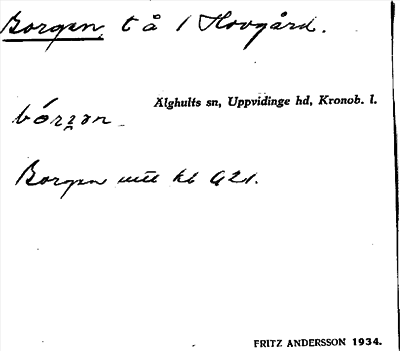 Borgen, t å 1 Hovgård.
Älghults sn, Uppvidinge hd, Kronob. l.
Borgen utt kb 921.
FRITZ ANDERSSON 1934.